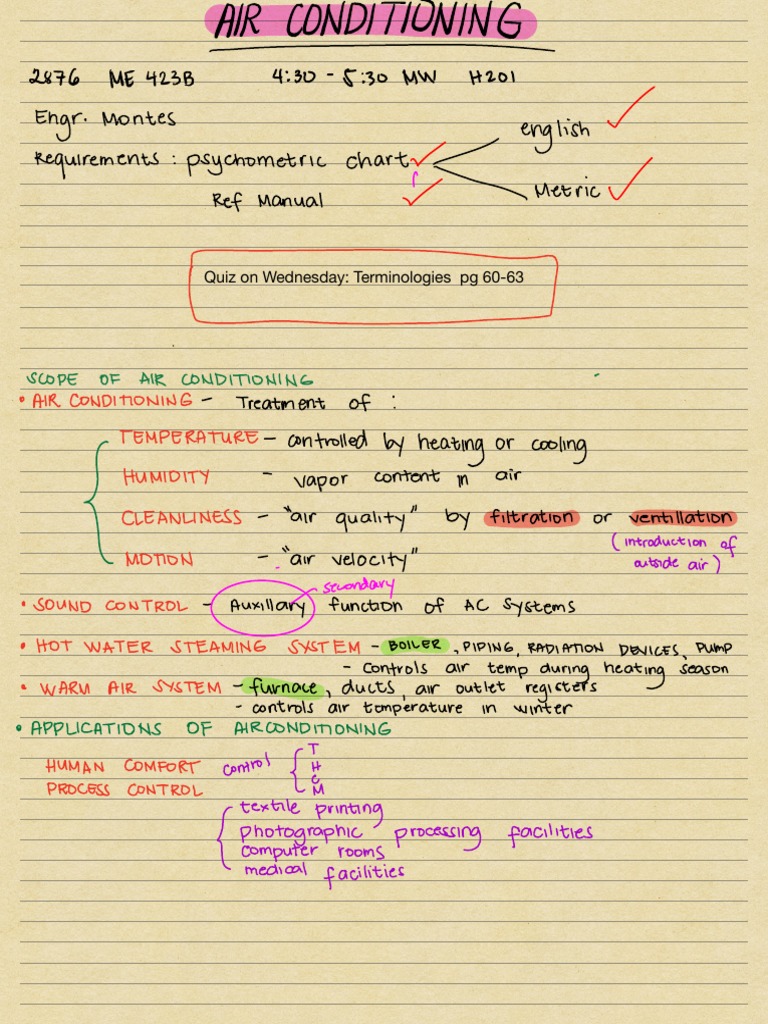 AIR CONDITIONING
2876 ME 423B 4:30 - 5:30 MW H201
Engr. Montes
english
Requirements : psychometric chart
r
Metric
Ref Manual
Quiz on Wednesday: Terminologies pg 60-63
SCOPE OF AIR CONDITIONING
• AIR CONDITIONING - Treatment of :
TEMPERATURE - controlled by heating or cooling
HUMIDITY - vapor content in air
CLEANLINESS - "air quality" by filtration or ventillation
(introduction of
outside air)
MOTION - "air velocity"
secondary
• SOUND CONTROL - Auxillary function of AC Systems
• HOT WATER STEAMING SYSTEM - BOILER, PIPING, RADIATION DEVICES, PUMP
- controls air temp during heating season
• WARM AIR SYSTEM - furnace, ducts, air outlet registers
- controls air temperature in winter
• APPLICATIONS OF AIRCONDITIONING
HUMAN COMFORT control T
H
C
M
PROCESS CONTROL
textile printing
photographic processing facilities
computer rooms
medical facilities